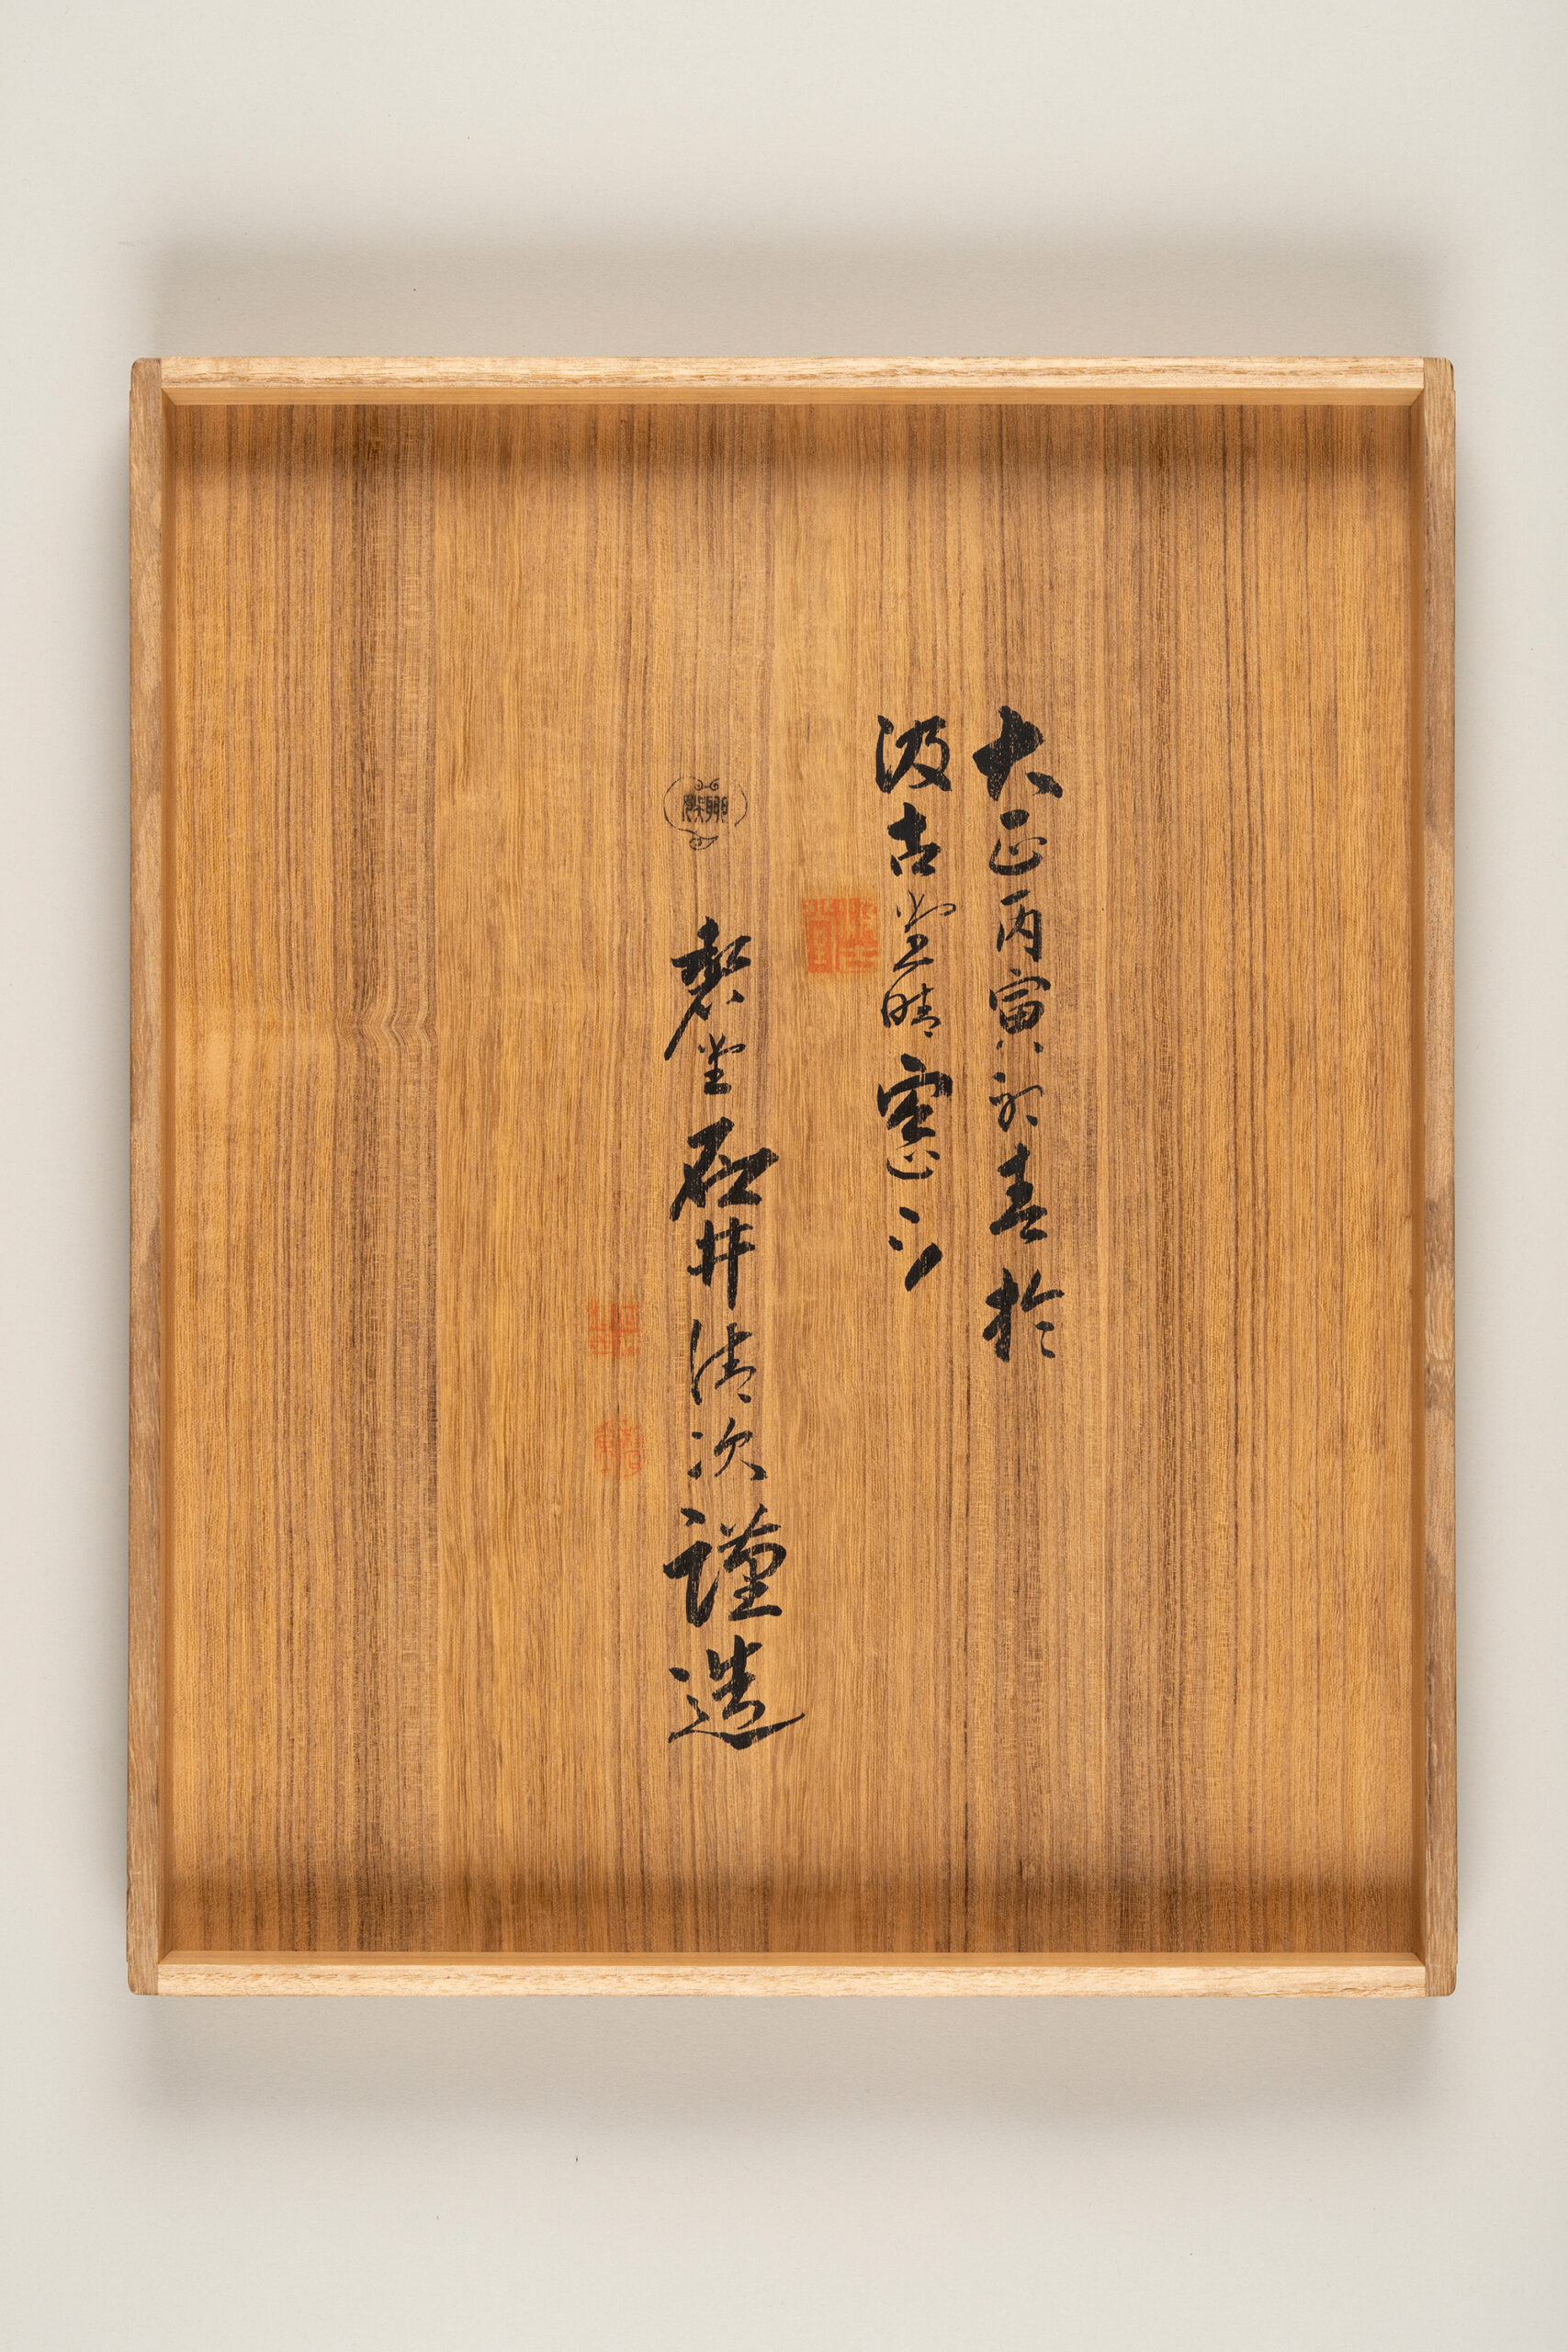 大正丙寅初春於
汲古堂晴窓下
堂石井清次謹造